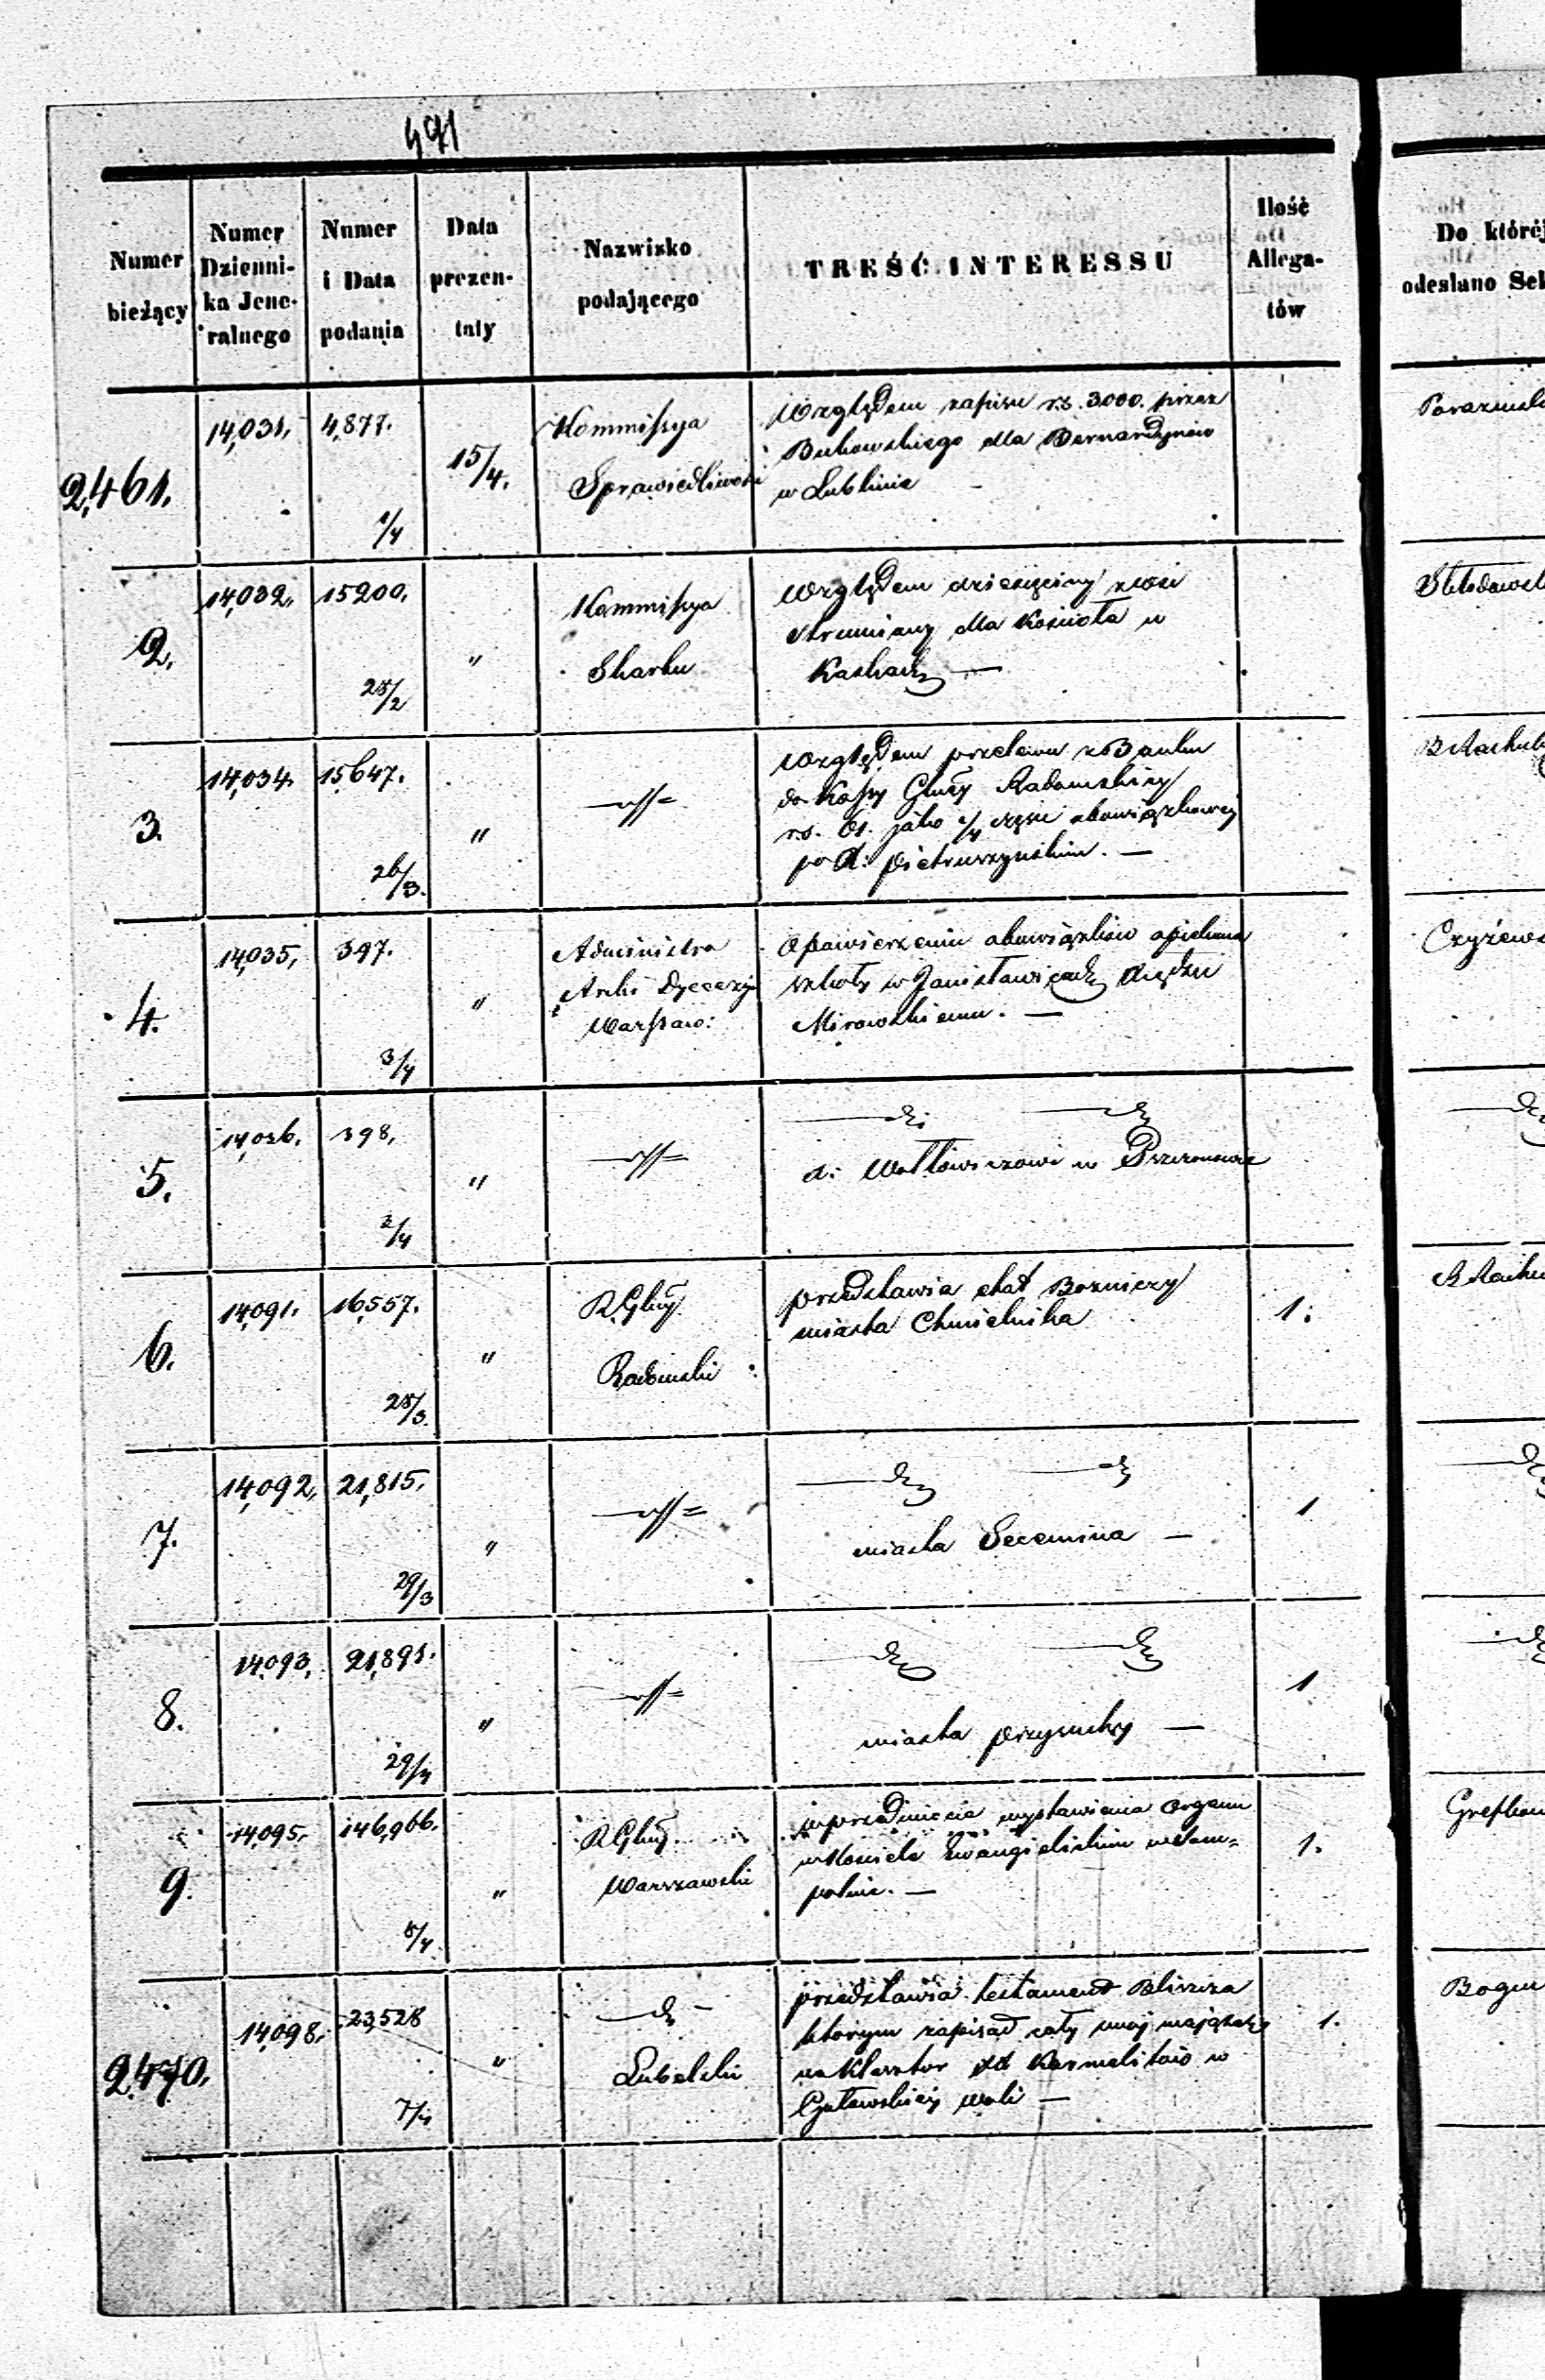 491
Numer bieżący
Numer Dzienni-ka Jene-ralnego
Numer i Data podania
Data prezen-taty
Nazwisko podającego
TREŚĆ INTERESSU
Ilość Allega-tów
Do któréj
odesłano Sek
2,461.
14,031.
4,877.
1/4
15/4.
Kommissya
Sprawiedliwości
Względem zapisu rs. 3000. przez
Bukowskiego dla Bernardynów
w Lublinie
2.
14,032.
15200.
28/2
"
Kommissya
Skarbu
Względem dziesięciny z wsi
Strumiany dla Kościoła w
Kaskach —
3.
14,034.
15,647.
26/3.
"
Względem przelewu z Banku
do Kassy Głnéj Radomskiéj
rs. 61. jako 1/4 części obowiązkowej
po X: Pietruszyńskim. —
4.
14,035.
397.
3/4
"
Administra
Archi Dyecezji
Warszaw:
O powierzeniu obowiązków opiekuna
szkoły w Janisławicach Xiędzu
Mirowskiemu. —
Czyżews
5.
14,036.
398.
3/4
"
X: Wołłowiczowi w
6.
14,091.
16,557.
28/3.
"
RGłny
Radomski
przedstawia etat Bożniczy
miasta Chmielnika
1.
7.
14,092.
21,815.
29/3
"
miasta Secemina —
1
8.
14,093.
21,891.
29/3
"
miasta Przysuchy —
1
9.
14,095.
146,966.
8/4
"
RGłny
Warszawski
w przedmiocie wystawienia organu
w Kościele Ewangielickim w Som=
polnie. —
1.
2,470.
14,098.
23,528
7/4
"
Lubelski
przedstawia testament
którym zapisał cały swój majątek
na Klasztor XX Karmelitów w
Woli —
1.